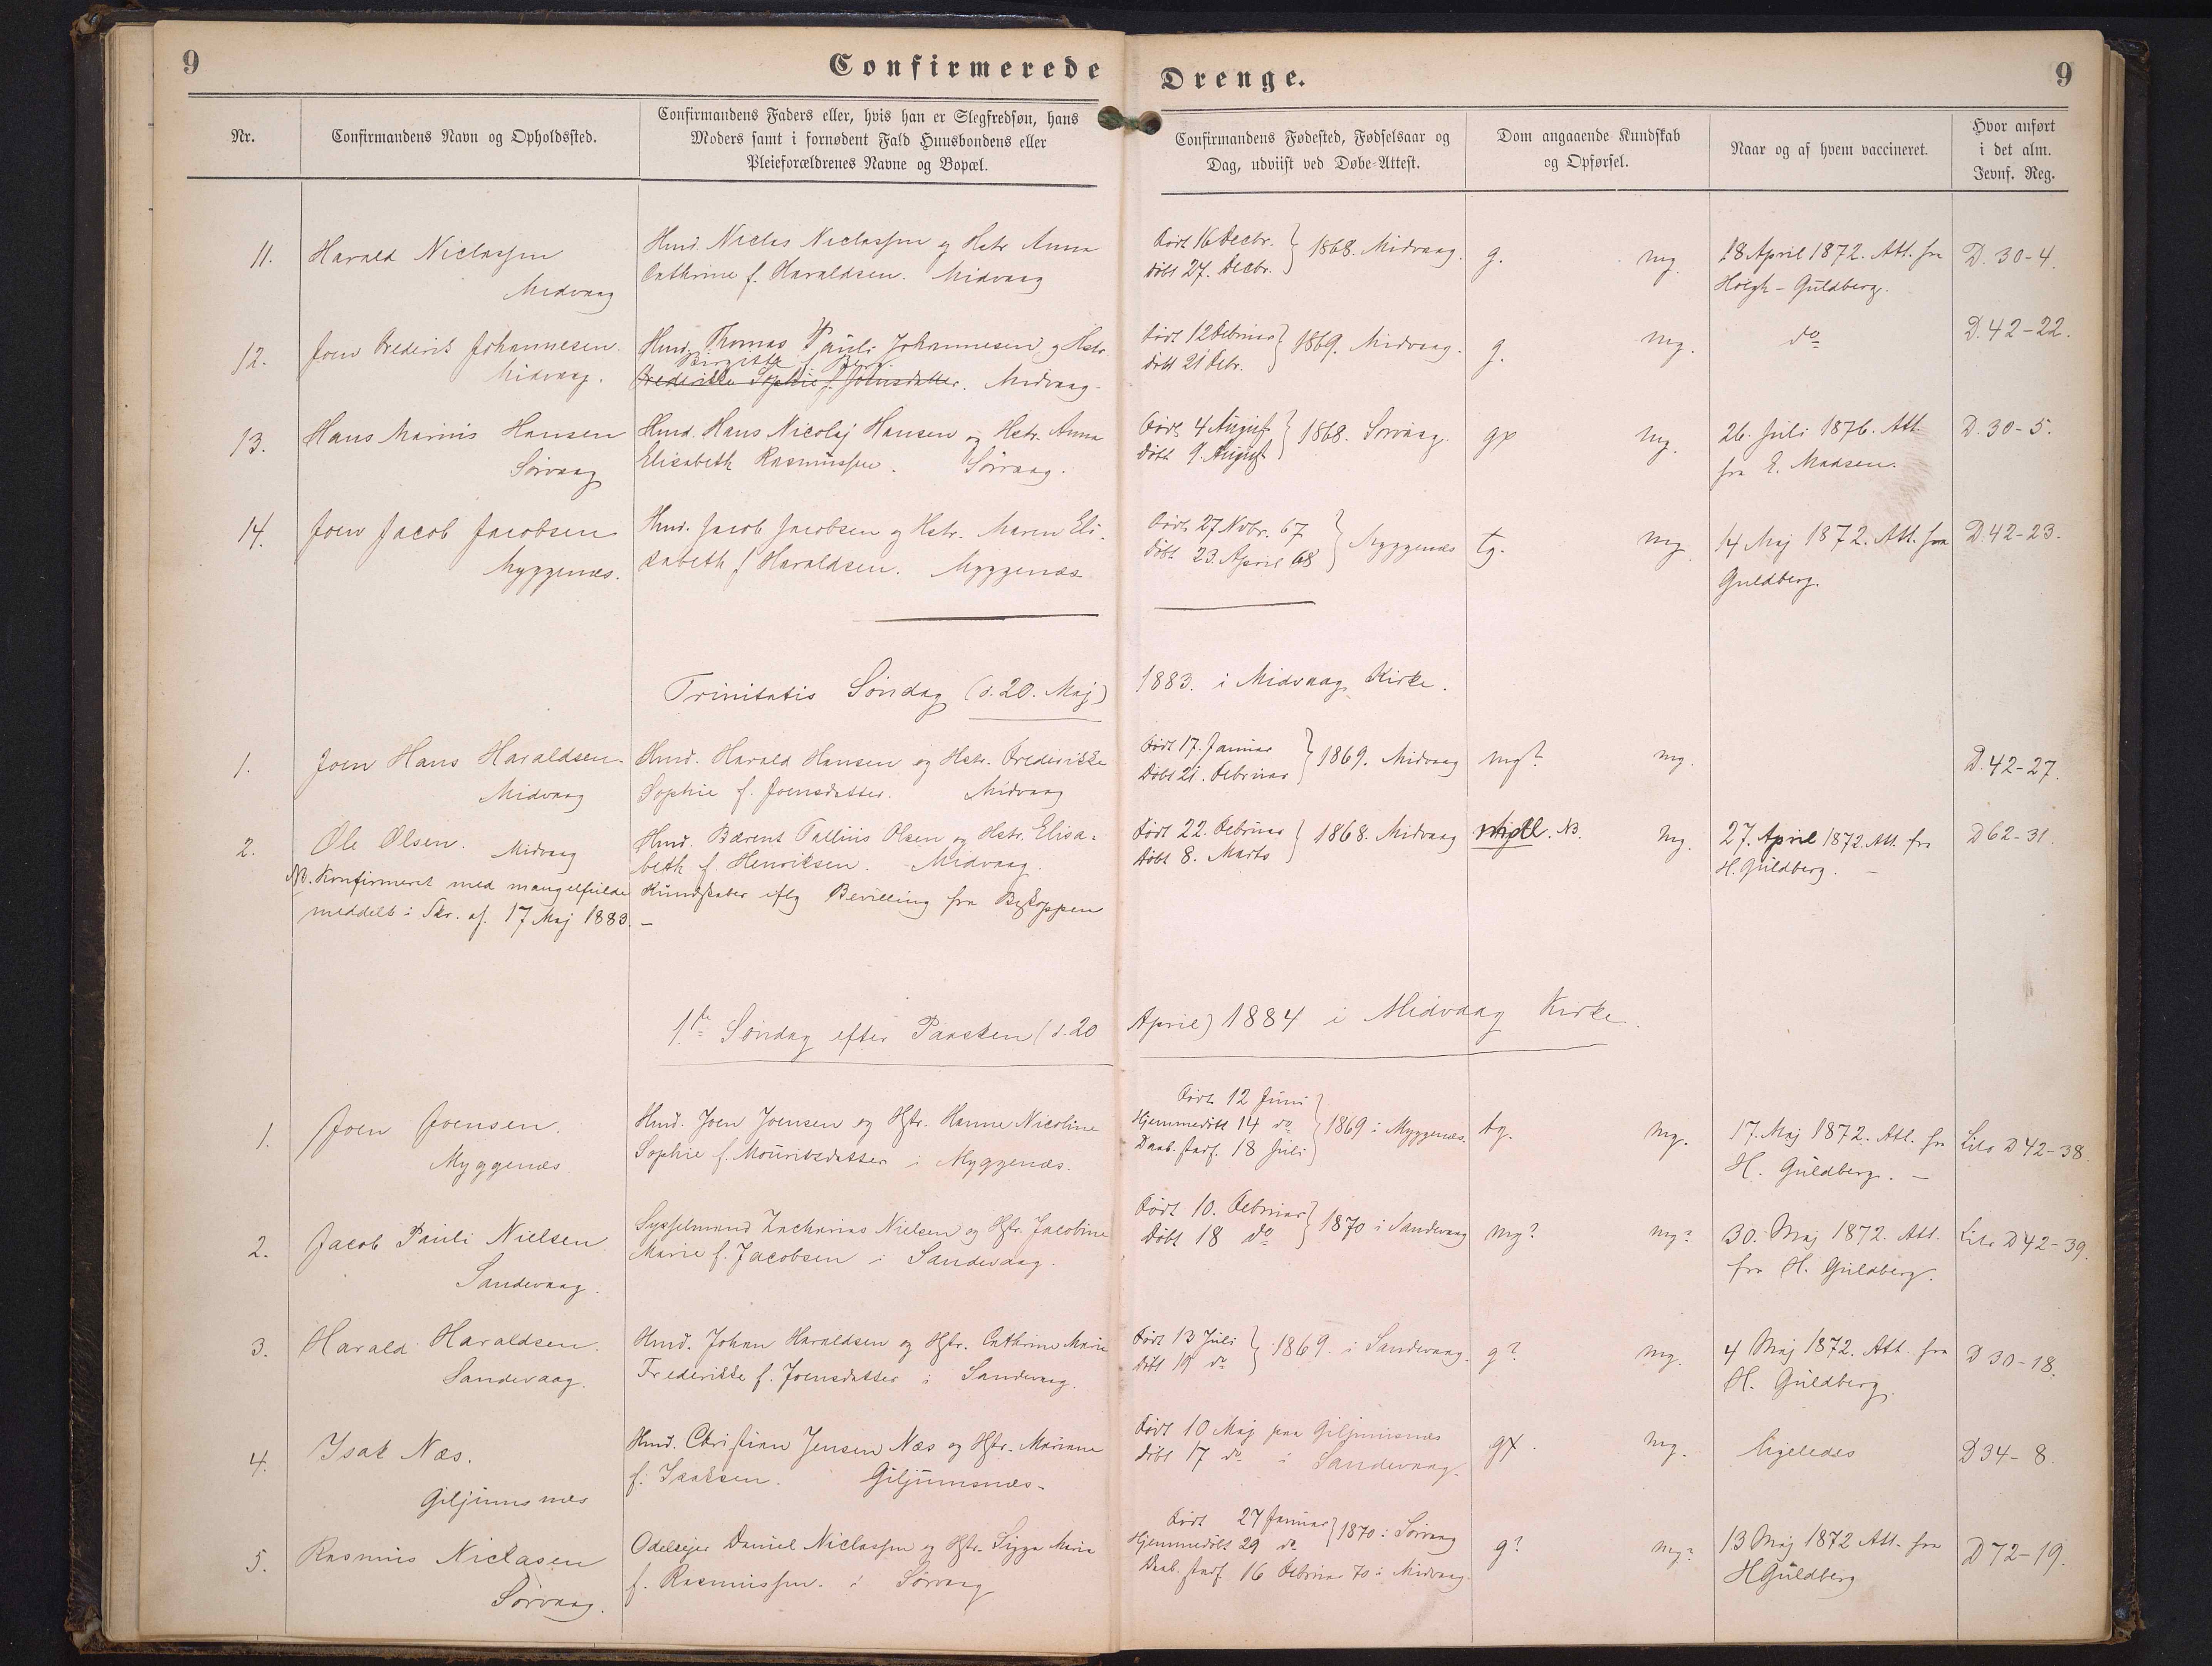 9
Confirmerede
Drenge.
9
Nr.
Confirmandens Navn og Opholdssted.
Confirmandens Faders eller, hvis han er Slegfredsøn, hans
Moders samt i fornødent Fald Huusbondens eller
Pleieforældrenes Navne og Bopæl.
Confirmandens Fødested, Fødselsaar og
Dag, udviist ved Døbe-Attest.
Dom angaaende Kundskab
og Opførsel.
Naar og af hvem vaccineret.
Hvor anført
i det alm.
Jevnf. Reg.
11.
Harald Niclassen
Midvaag
Hmd. Niclas Niclassen og Hstr. Anna
Cathrine f. Haraldsen. Midvaag
Født 16 Decbr.
døbt 27. Decbr.
1868. Midvaag.
g.
mg.
18 April 1872. Att. fra
Høegh-Guldberg.
D. 30-4.
12.
Joen Frederik Johannesen
Midvaag.
Hmd. Thomas Pauli Johannesen og Hstr.
Birgitte f. Berg.
Frederikke Sophie f. Joensdatter. Midvaag.
Født 12 Februar
døbt 21 Febr.
1869. Midvaag.
g.
mg.
do
D. 42-22.
13.
Hans Marius Hansen
Sørvaag
Hmd. Hans Nicolaj Hansen og Hstr. Anna
Elisabeth Rasmussen. Sørvaag.
Født 4 August
døbt 9. August
1868. Sørvaag.
g×
mg.
26. Juli 1876. Att.
fra E. Madsen.
D. 30-5.
14.
Joen Jacob Jacobsen
Myggenæs.
Hmd. Jacob Jacobsen og Hstr. Maren Eli-
sabeth f. Haraldsen. Myggenæs
Født 27 Novbr. 67
døbt 23. April 68
Myggenæs
tg.
mg.
14 Maj 1872. Att. fra
Guldberg.
D. 42-23.
Trinitatis Søndag (d. 20. Maj)
1883. i Midvaag Kirke.
1.
Joen Hans Haraldsen.
Midvaag
Hmd. Harald Hansen og Hstr. Frederikke
Sophie f. Joensdatter. Midvaag
Født 17. Januar
Døbt 21. Februar
1869. Midvaag
mg?
mg.
D. 42-27.
2.
Ole Olsen. Midvaag
Hmd. Bærent Tallius Olsen og Hstr. Elisa-
beth f. Henriksen. Midvaag.
Født 22. Februar
Døbt 8. Marts
1868. Midvaag
NB.
mg.
27. April 1872. Att. fra
H. Guldberg. -
D 62-31.
NB. Konfirmeret med mangelfulde Kundskaber iflg Bevilling fra Biskoppen
meddelt i Skr. af. 17 Maj 1883. -
1ste Søndag efter Paasken (d. 20
April) 1884 i Midvaag Kirke.
1.
Joen Joensen.
Myggenæs
Hmd. Joen Joensen og Hstr. Hanne Nicoline
Sophie f. Mouritzdatter i Myggenæs.
Født 12 Juni
Hjemmedøbt 14 do
Daab. stadf. 18 Juli
1869 i Myggenæs.
tg.
mg.
17. Maj 1872. Att. fra
H. Guldberg. -
Litr D 42-38.
2.
Jacob Pauli Nielsen
Sandevaag.
Sysselmand Zacharias Nielsen og Hstr. Jacobine
Marie f. Jacobsen i Sandevaag.
Født 10. Februar
Døbt 18 do
1870 i Sandevaag
mg?
mg?
30. Maj 1872. Att.
fra H. Guldberg.
Litr D 42-39.
3.
Harald Haraldsen.
Sandevaag.
Hmd. Johan Haraldsen og Hstr. Cathrine Marie
Frederikke f. Joensdatter i Sandevaag.
Født 13 Juli
døbt 19 do
1869. i Sandevaag.
g?
mg.
4 Maj 1872. Att. fra
H. Guldberg.
D 30-18.
4.
Isak Næs.
Giljumsnæs
Hmd. Christian Jensen Næs og Hstr. Mariane
f. Isaksen. Giljumsnæs.
Født 10 Maj paa Giljumsnæs
døbt 17 do i Sandevaag.
g×.
mg.
ligeledes
D 34-8.
5.
Rasmus Niclasen
Sørvaag.
Odelsejer Daniel Niclassen og Hstr. Sigga Marie
f. Rasmussen. i Sørvaag
Født 27 Januar
Hjemmedøbt 29 do
1870 i Sørvaag
Daab. stadf. 16 Februar 70 i Midvaag.
g?
mg?
13 Maj 1872 Att. fra
H Guldberg
D 72-19.